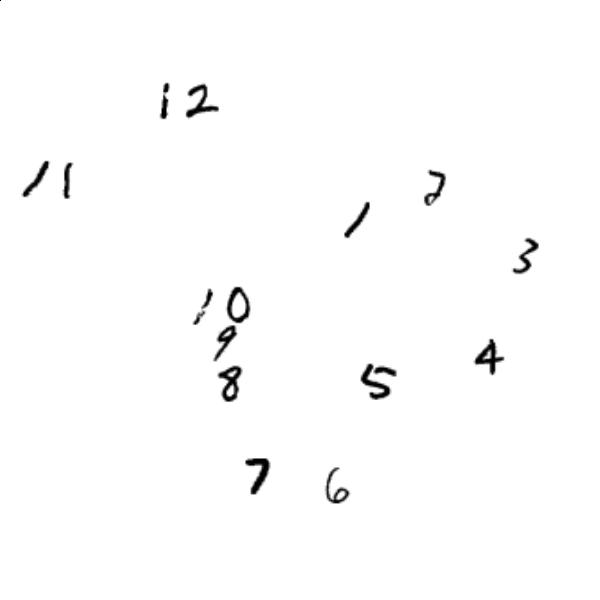 12
11
2
1
3
10
9
4
8
5
7
6